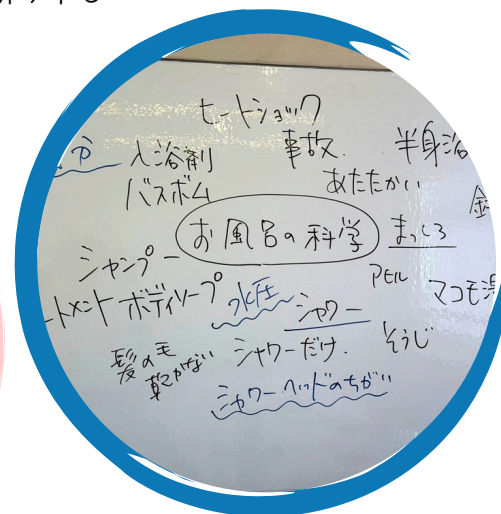 ヒートショック
事故. 半身浴
入浴剤
バスボム あたたかい
お風呂の科学 まっくろ
シャンプー
アヒル マコモ湯
ートメント ボディソープ 水圧 シャワー
髪の毛 乾かない シャワーだけ. そうじ
シャワーヘッドのちがい